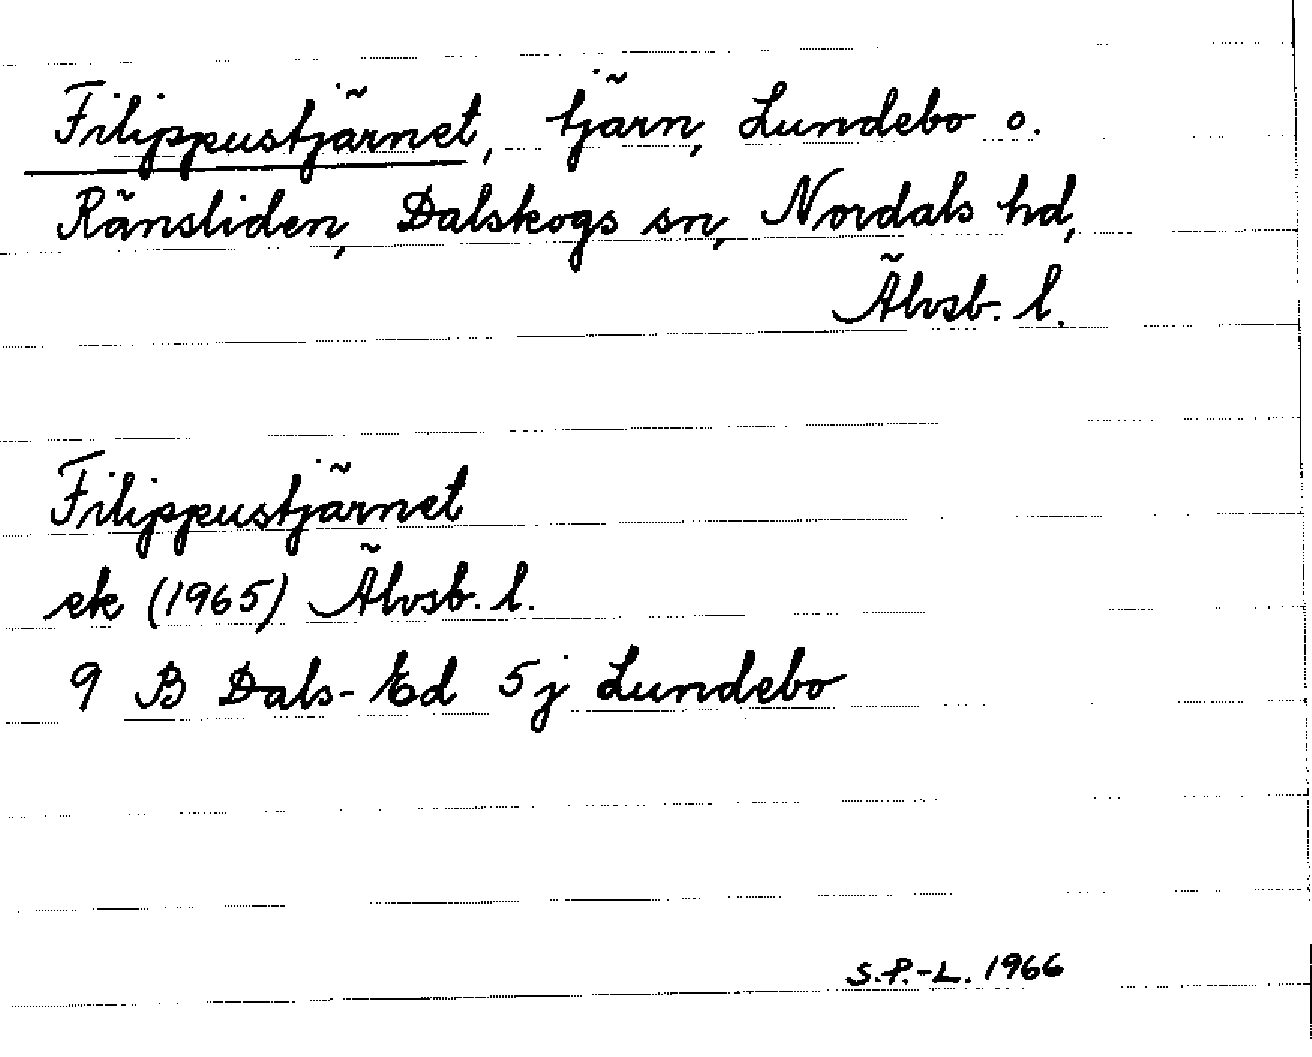 Filippustjärnet, tjärn, Lundebo o.
Ränsliden, Dalskogs sn, Nordals hd,
Älvsb. l.
Filippustjärnet
ek (1965) Älvsb. l.
9 B Dals-Ed 5j Lundebo
S.P.-L. 1966